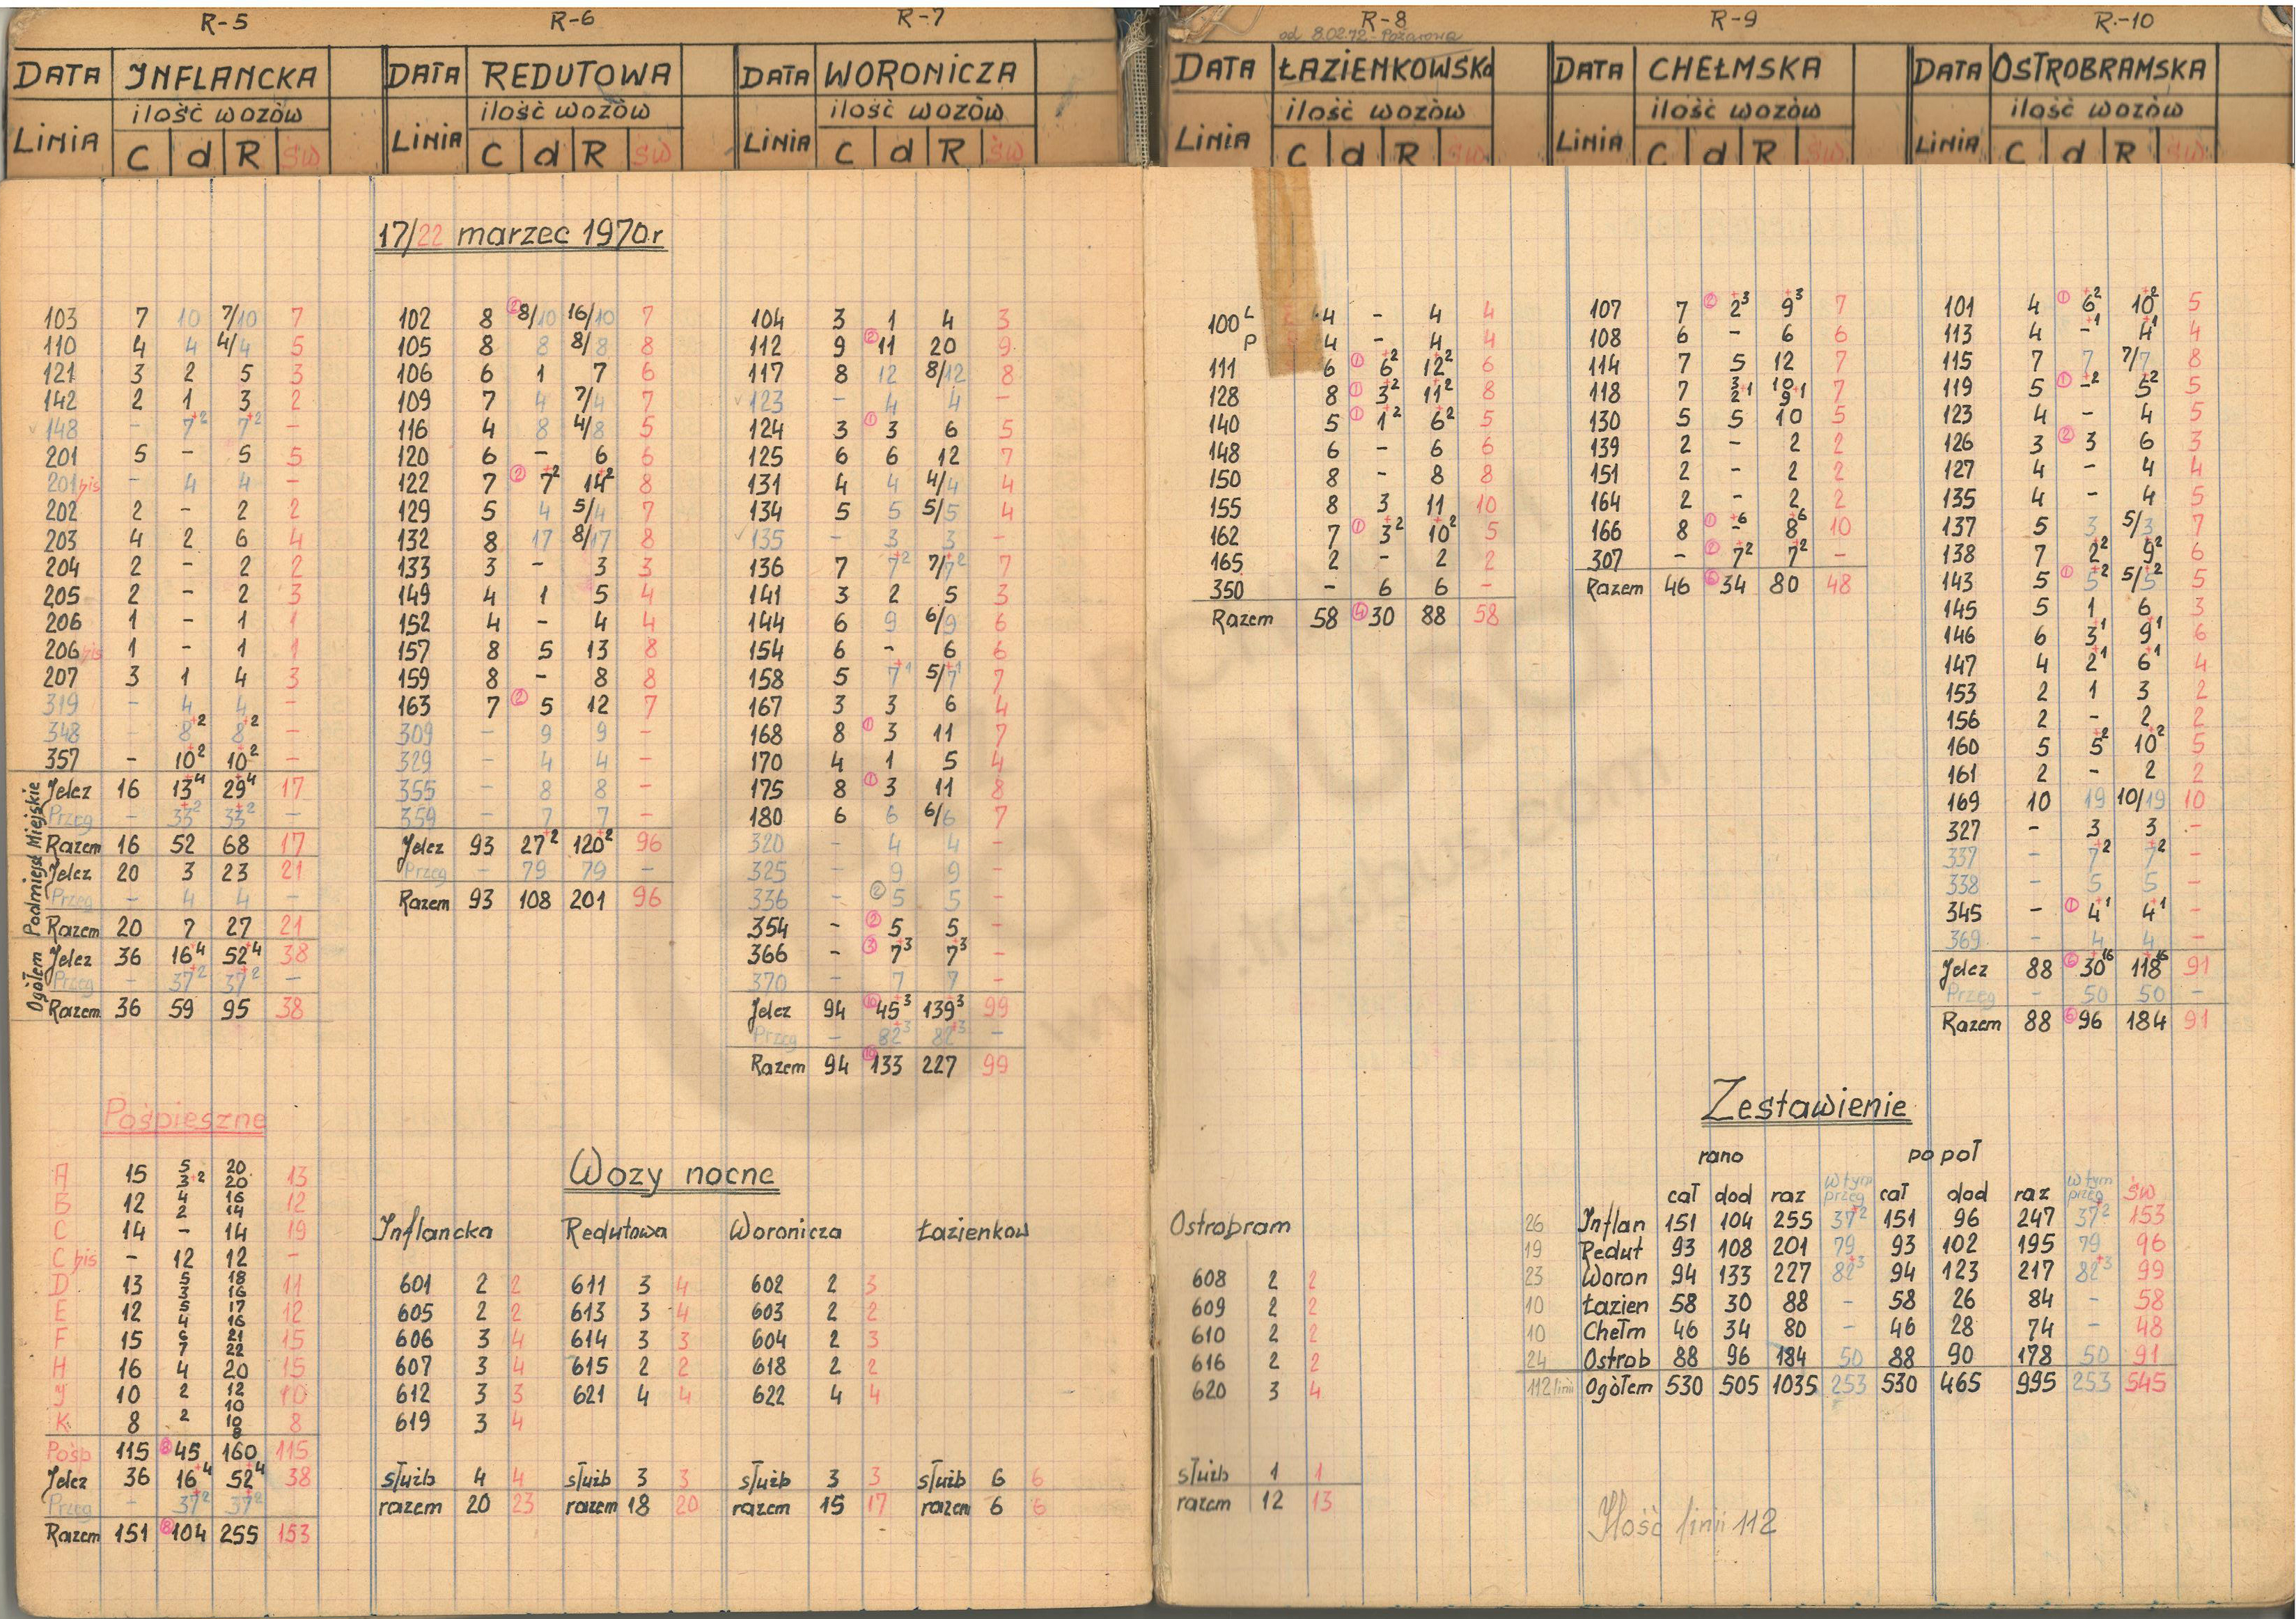 R-5
DATA INFLANCKA
ilość wozòw
LINIA C d R ŚW
R-6
DATA REDUTOWA
ilość wozòw
LINIA C d R ŚW
R-7
DATA WORONICZA
ilość wozòw
LINIA C d R ŚW
R-8
od 8.02.72 - Pożarowa
DATA ŁAZIENKOWSKa
ilość wozòw
LINIA C d R ŚW
R-9
DATA CHEŁMSKA
ilość wozòw
LINIA C d R ŚW
R-10
DATA OSTROBRAMSKA
ilość wozòw
LINIA C d R ŚW
17/22 marzec 1970r
103 7 10 7/10 7
110 4 4 4/4 5
121 3 2 5 3
142 2 1 3 2
148 - 7+2 7+2 -
201 5 - 5 5
201bis - 4 4 -
202 2 - 2 2
203 4 2 6 4
204 2 - 2 2
205 2 - 2 3
206 1 - 1 1
206bis 1 - 1 1
207 3 1 4 3
319 - 4 4 -
348 - 8+2 8+2 -
357 - 10+2 10+2 -
Miejskie
Jelcz 16 13+4 29+4 17
Przeg - 33+2 33+2 -
Razem 16 52 68 17
Podmiejsk
Jelcz 20 3 23 21
Przeg - 4 4 -
Razem 20 7 27 21
Ogółem
Jelcz 36 16+4 52+4 38
Przeg - 37+2 37+2 -
Razem 36 59 95 38
102 8 ② 8/10 16/10 7
105 8 8 8/8 8
106 6 1 7 6
109 7 4 7/4 7
116 4 8 4/8 5
120 6 - 6 6
122 7 ② 7+2 14+2 8
129 5 4 5/4 7
132 8 17 8/17 8
133 3 - 3 3
149 4 1 5 4
152 4 - 4 4
157 8 5 13 8
159 8 - 8 8
163 7 ② 5 12 7
309 - 9 9 -
329 - 4 4 -
355 - 8 8 -
359 - 7 7 -
Jelcz 93 27+2 120+2 96
Przeg - 79 79 -
Razem 93 108 201 96
104 3 1 4 3
112 9 ② 11 20 9
117 8 12 8/12 8
123 - 4 4 -
124 3 ① 3 6 5
125 6 6 12 7
131 4 4 4/4 4
134 5 5 5/5 4
135 - 3 3 -
136 7 7+2 7/7+2 7
141 3 2 5 3
144 6 9 6/9 6
154 6 - 6 6
158 5 7+1 5/7+1 7
167 3 3 6 4
168 8 ① 3 11 7
170 4 1 5 4
175 8 ① 3 11 8
180 6 6 6/6 7
320 - 4 4 -
325 - 9 9 -
336 - ② 5 5 -
354 - ② 5 5 -
366 - ③ 7+3 7+3 -
370 - 7 7 -
Jelcz 94 ⑩ 45+3 139+3 99
Przeg - 82+3 82+3 -
Razem 94 ⑩ 133 227 99
100 L 4 - 4 4
P 4 - 4 4
111 6 ① 6+2 12+2 6
128 8 ① 3+2 11+2 8
140 5 ① 1+2 6+2 5
148 6 - 6 6
150 8 - 8 8
155 8 3 11 10
162 7 ① 3+2 10+2 5
165 2 - 2 2
350 - 6 6 -
Razem 58 ④ 30 88 58
107 7 ② 2+3 9+3 7
108 6 - 6 6
114 7 5 12 7
118 7 3 2+1 10 9+1 7
130 5 5 10 5
139 2 - 2 2
151 2 - 2 2
164 2 - 2 2
166 8 ① -+6 8+6 10
307 - ② 7+2 7+2 -
Razem 46 34 80 48
101 4 ① 6+2 10+2 5
113 4 -+1 4+1 4
115 7 7 7/7 8
119 5 ① -+2 5+2 5
123 4 - 4 5
126 3 ② 3 6 3
127 4 - 4 4
135 4 - 4 5
137 5 3 5/3 7
138 7 2+2 9+2 6
143 5 ① 5+2 5/5+2 5
145 5 1 6 3
146 6 3+1 9+1 6
147 4 2+1 6+1 4
153 2 1 3 2
156 2 - 2 2
160 5 5+2 10+2 5
161 2 - 2 2
169 10 19 10/19 10
327 - 3 3 -
337 - 7+2 7+2 -
338 - 5 5 -
345 - ① 4+1 4+1 -
369 - 4 4 -
Jelcz 88 ⑥ 30+16 118+16 91
Przeg - 50 50 -
Razem 88 ⑥ 96 184 91
Pośpieszne
A 15 5 3+2 20 20 13
B 12 4 2 16 14 12
C 14 - 14 19
C bis - 12 12 -
D 13 5 3 18 16 11
E 12 5 4 17 16 12
F 15 6 7 21 22 15
H 16 4 20 15
J 10 2 12 10 10
K 8 2 10 8 8
Pośp 115 ⑧ 45 160 115
Jelcz 36 16+4 52+4 38
Przeg - 37+2 37+2
Razem 151 ⑧ 104 255 153
Wozy nocne
Inflancka
601 2 2
605 2 2
606 3 4
607 3 4
612 3 3
619 3 4
służb 4 4
razem 20 23
Redutowa
611 3 4
613 3 4
614 3 3
615 2 2
621 4 4
służb 3 3
razem 18 20
Woronicza
602 2 3
603 2 2
604 2 3
618 2 2
622 4 4
służb 3 3
razem 15 17
Łazienkow
służb 6 6
razem 6 6
Ostrobram
608 2 2
609 2 2
610 2 2
616 2 2
620 3 4
służb 1 1
razem 12 13
Zestawienie
rano po poł
cał dod raz w tym przeg cał dod raz w tym przeg św
26 Inflan 151 104 255 37+2 151 96 247 37+2 153
19 Redut 93 108 201 79 93 102 195 79 96
23 Woron 94 133 227 82+3 94 123 217 82+3 99
10 Łazien 58 30 88 - 58 26 84 - 58
10 Chełm 46 34 80 - 46 28 74 - 48
24 Ostrob 88 96 184 50 88 90 178 50 91
112 linii Ogòłem 530 505 1035 253 530 465 995 253 545
Ilość linii 112